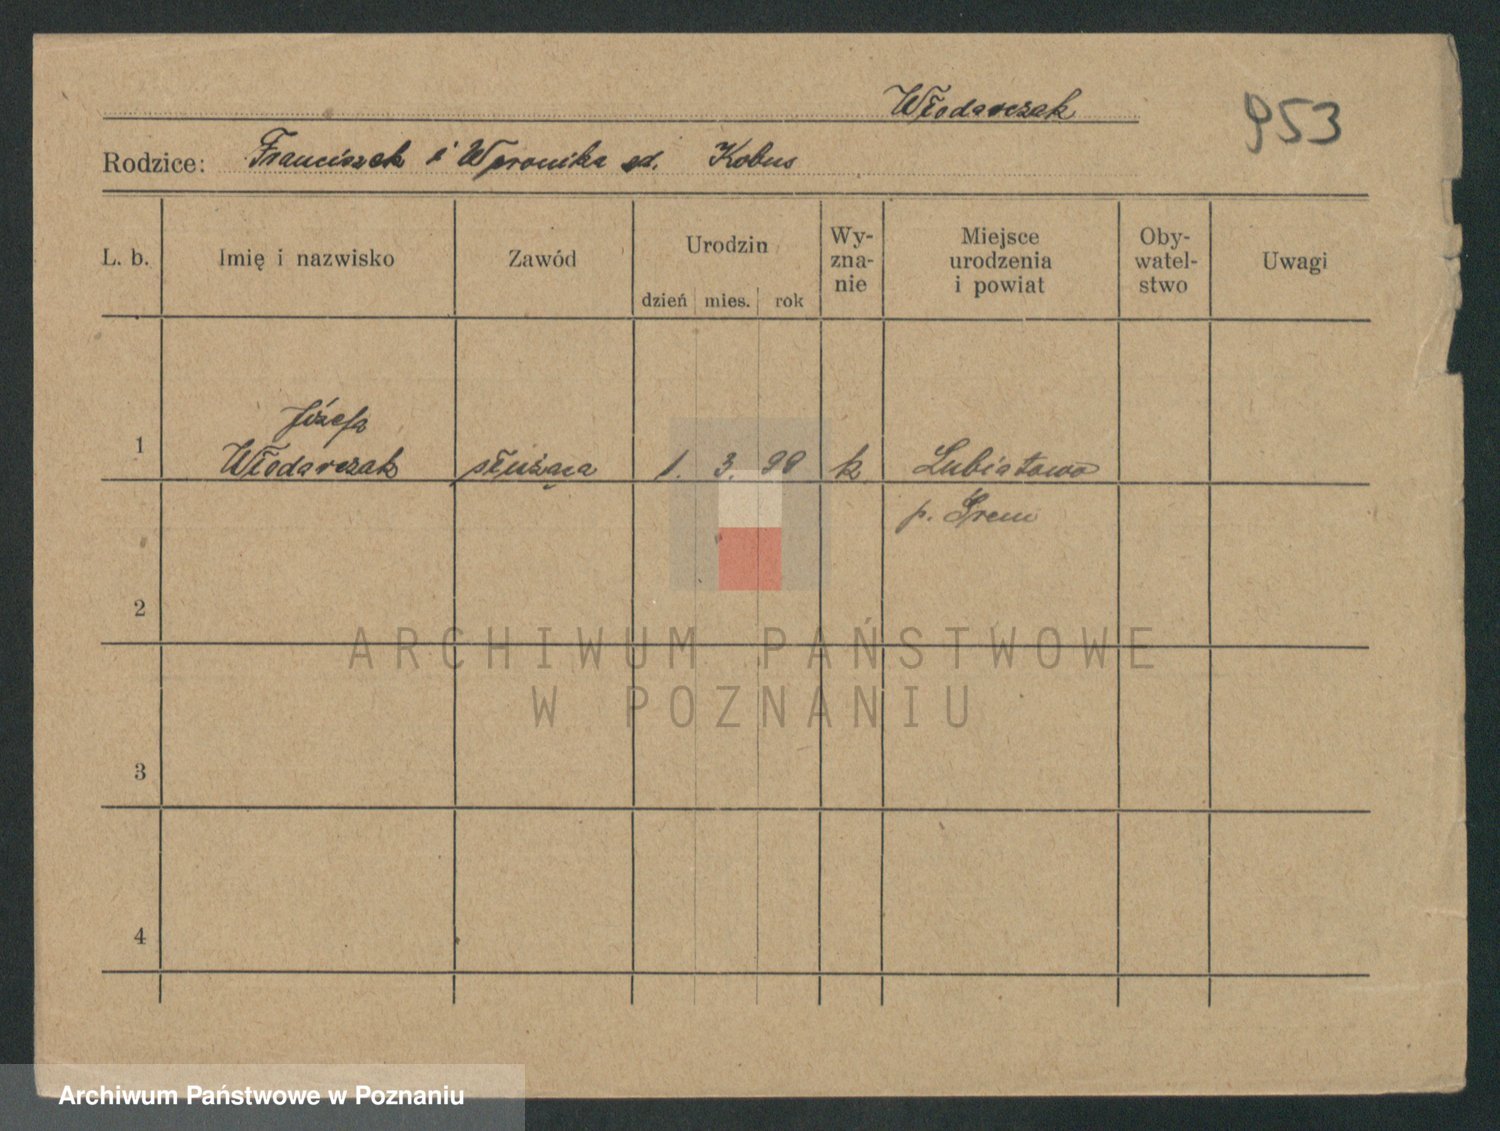 Włodarczak
953
Rodzice: Franciszek i Weronika zd. Kobus
L. b.
Imię i nazwisko
Zawód
Urodzin
dzień mies. rok
Wy-
zna-
nie
Miejsce
urodzenia
i powiat
Oby-
watel-
stwo
Uwagi
1
Józefa
Włodarczak
służąca
1. 3. 99
k.
Lubiatowo
p. Śrem
2
3
4
ARCHIWUM PAŃSTWOWE
W POZNANIU
Archiwum Państwowe w Poznaniu